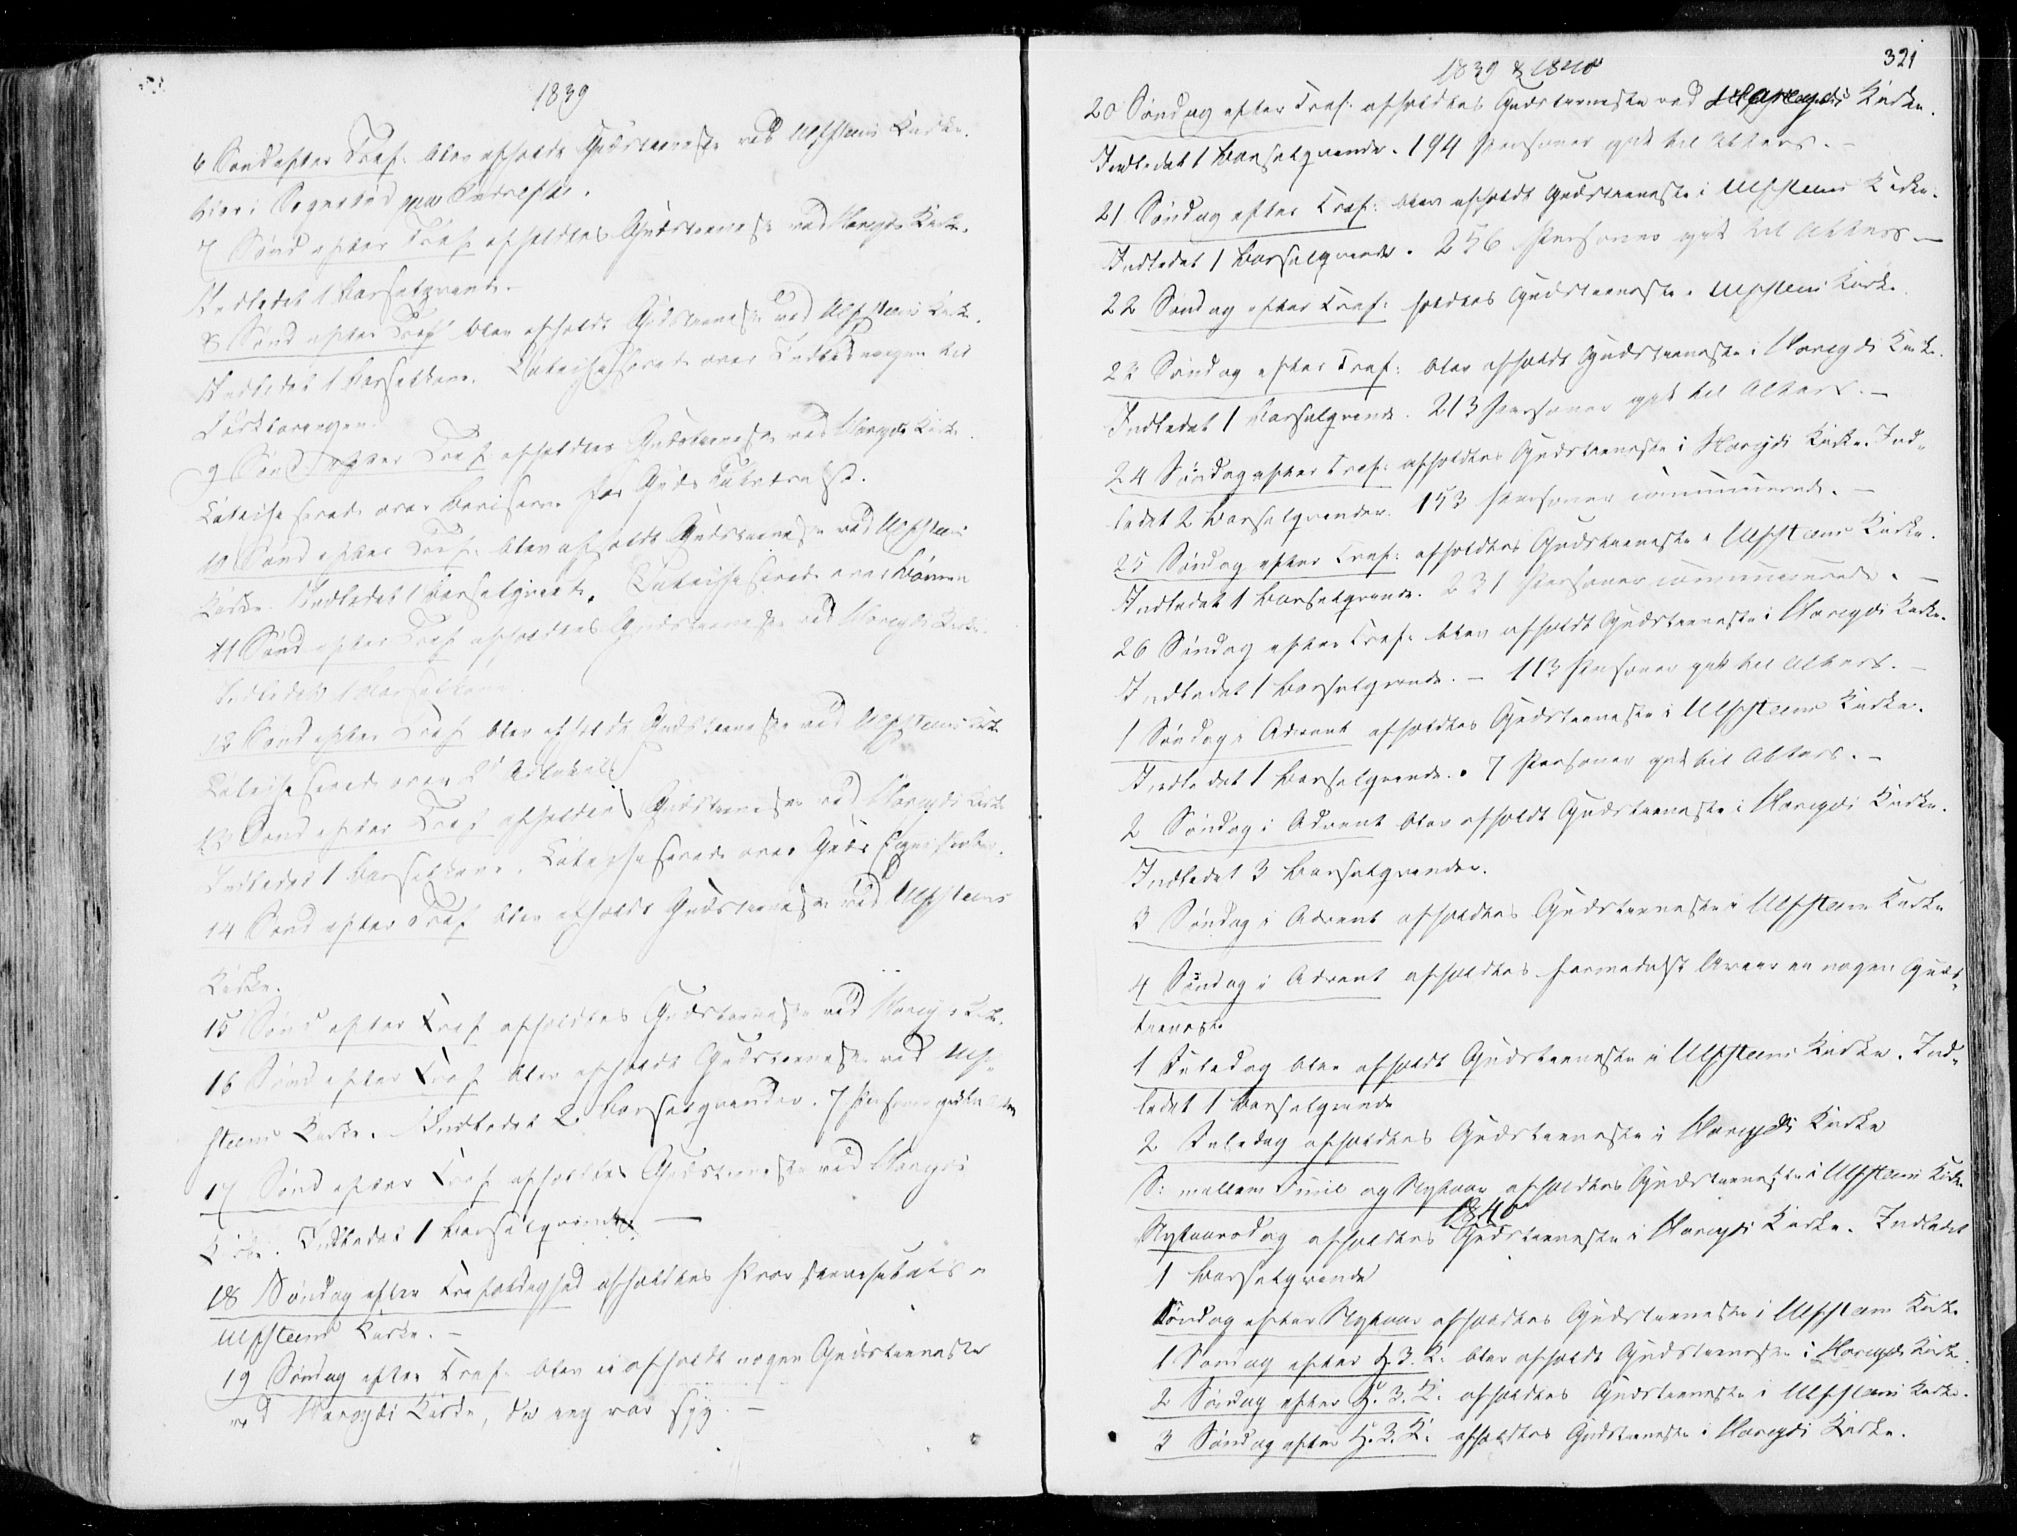 1839
6 Sønd efter Tref. blev afholdt Gudstieneste ved Ulfsteins Kirke.
7 Sønd efter Tref. afholdtes Gudstieneste ved Hareyds Kirke.
Indledet 1 Barselqvinde.
8 Sønd efter Tref blev afholdt Gudstieneste ved Ulfsteins Kirke.
Indledet 1 Barselkone. Catechiserede over Indledningen til
Forklaringen
9 Sønd efter Tref. afholdtes Gudstieneste ved Hareyds Kirke.
Catechiserede over Beviserne for Guds Tilværelse.
10 Sønd efter Tref. blev afholdt Gudstieneste ved Ulfsteins
Kirke. Indledet 1 Barselqvinde. Catechiserede over Bønnen
11 Sønd efter Tref afholdtes Gudstieneste ved Hareyds Kirke.
Indledet 1 Barselkone
12 Sønd efter Tref blev afholdt Gudstieneste ved Ulfsteins Kirke
Catechiserede over
13 Sønd efter Tref afholdtes Gudstieneste ved Hareyds Kirke
Indledet 1 Barselkone. Catechiserede over Guds Egenskaber.
14 Sønd efter Tref blev afholdt Gudstieneste ved Ulfsteins
Kirke.
15 Sønd efter Tref afholdtes Gudstieneste ved Hareyds Kirke.
16 Sønd efter Tref blev afholdt Gudstieneste ved Ulf-
steins Kirke. Indledet 2 Barselqvinder. 7 Personer gik til
17 Sønd efter Tref afholdtes Gudstieneste ved Hareyds
Kirke. Indledet 1 Barselqvinde. —
18 Søndag efter Trefoldighed afholdtes Provstevisitats i
Ulfsteins Kirke. —
19 Søndag efter Tref. blev ei afholdt nogen Gudstieneste
ved Hareyds Kirke, da jeg var syg. —
1839 & 1840
321
20 Søndag efter Tref. afholdtes Gudstieneste ved Hareyds Kirke.
Indledet 1 Barselqvinde. 194 Personer gik til Alters. —
21 Søndag efter Tref: blev afholdt Gudstieneste i Ulfsteins Kirke.
Indledet 1 Barselqvinde. 256 Personer gik til Alters —
22 Søndag efter Tref: holdtes Gudstieneste i Ulfsteins Kirke.
23 Søndag efter Tref: blev afholdt Gudstieneste i Hareyds Kirke.
Indledet 1 Barselqvinde. 213 Personer gik til Alters. —
24 Søndag efter Tref: afholdtes Gudstieneste i Hareyds Kirke. Ind-
ledet 2 Barselqvinder. 153 Personer communicerede. —
25 Søndag efter Tref: afholdtes Gudstieneste i Ulfsteins Kirke.
Indledet 1 Barselqvinde. 231 Personer communicerede. —
26 Søndag efter Tref: blev afholdt Gudstieneste i Hareyds Kirke.
Indledet 1 Barselqvinde. — 113 Personer gik til Alters. —
1 Søndag i Advent afholdtes Gudstieneste i Ulfsteins Kirke.
Indledet 1 Barselqvinde. 7 Personer gik til Alters. —
2 Søndag i Advent blev afholdt Gudstieneste i Hareyds Kirke.
Indledet 3 Barselqvinder.
3 Søndag i Advent afholdtes Gudstieneste i Ulfsteins Kirke
4 Søndag i Advent afholdtes formedelst nogen Guds-
tieneste
1 Juledag blev afholdt Gudstieneste i Ulfsteins Kirke. Ind-
ledet 1 Barselqvinde
2 Juledag afholdtes Gudstieneste i Hareyds Kirke
S: mellem Juul og Nytaar afholdtes Gudstieneste i Ulfsteins Kirke
1840
Nytaarsdag afholdtes Gudstieneste i Hareyds Kirke. Indledet
1 Barselqvinde
Søndag efter Nytaar afholdtes Gudstieneste i Ulfsteins Kirke
1 Søndag efter H. 3. K. blev afholdt Gudstieneste i Hareyds Kirke.
2 Søndag efter H. 3. K. afholdtes Gudstieneste i Ulfsteins Kirke.
3 Søndag efter H. 3. K. afholdtes Gudstieneste i Hareyds Kirke.